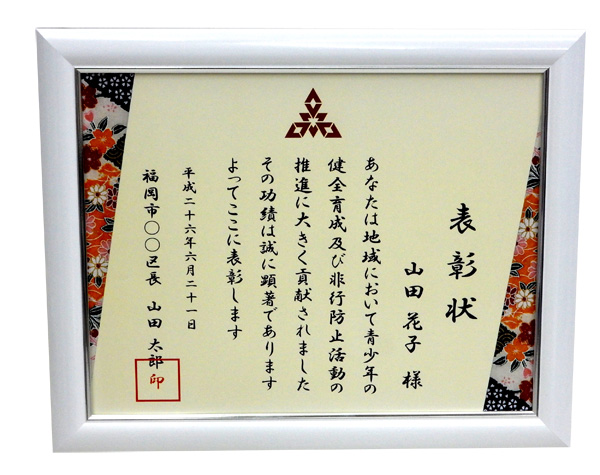 表彰状
山田花子 様
あなたは地域において青少年の
健全育成及び非行防止活動の
推進に大きく貢献されました
その功績は誠に顕著であります
よってここに表彰します
平成二十六年六月二十一日
福岡市〇〇区長 山田 太郎
印